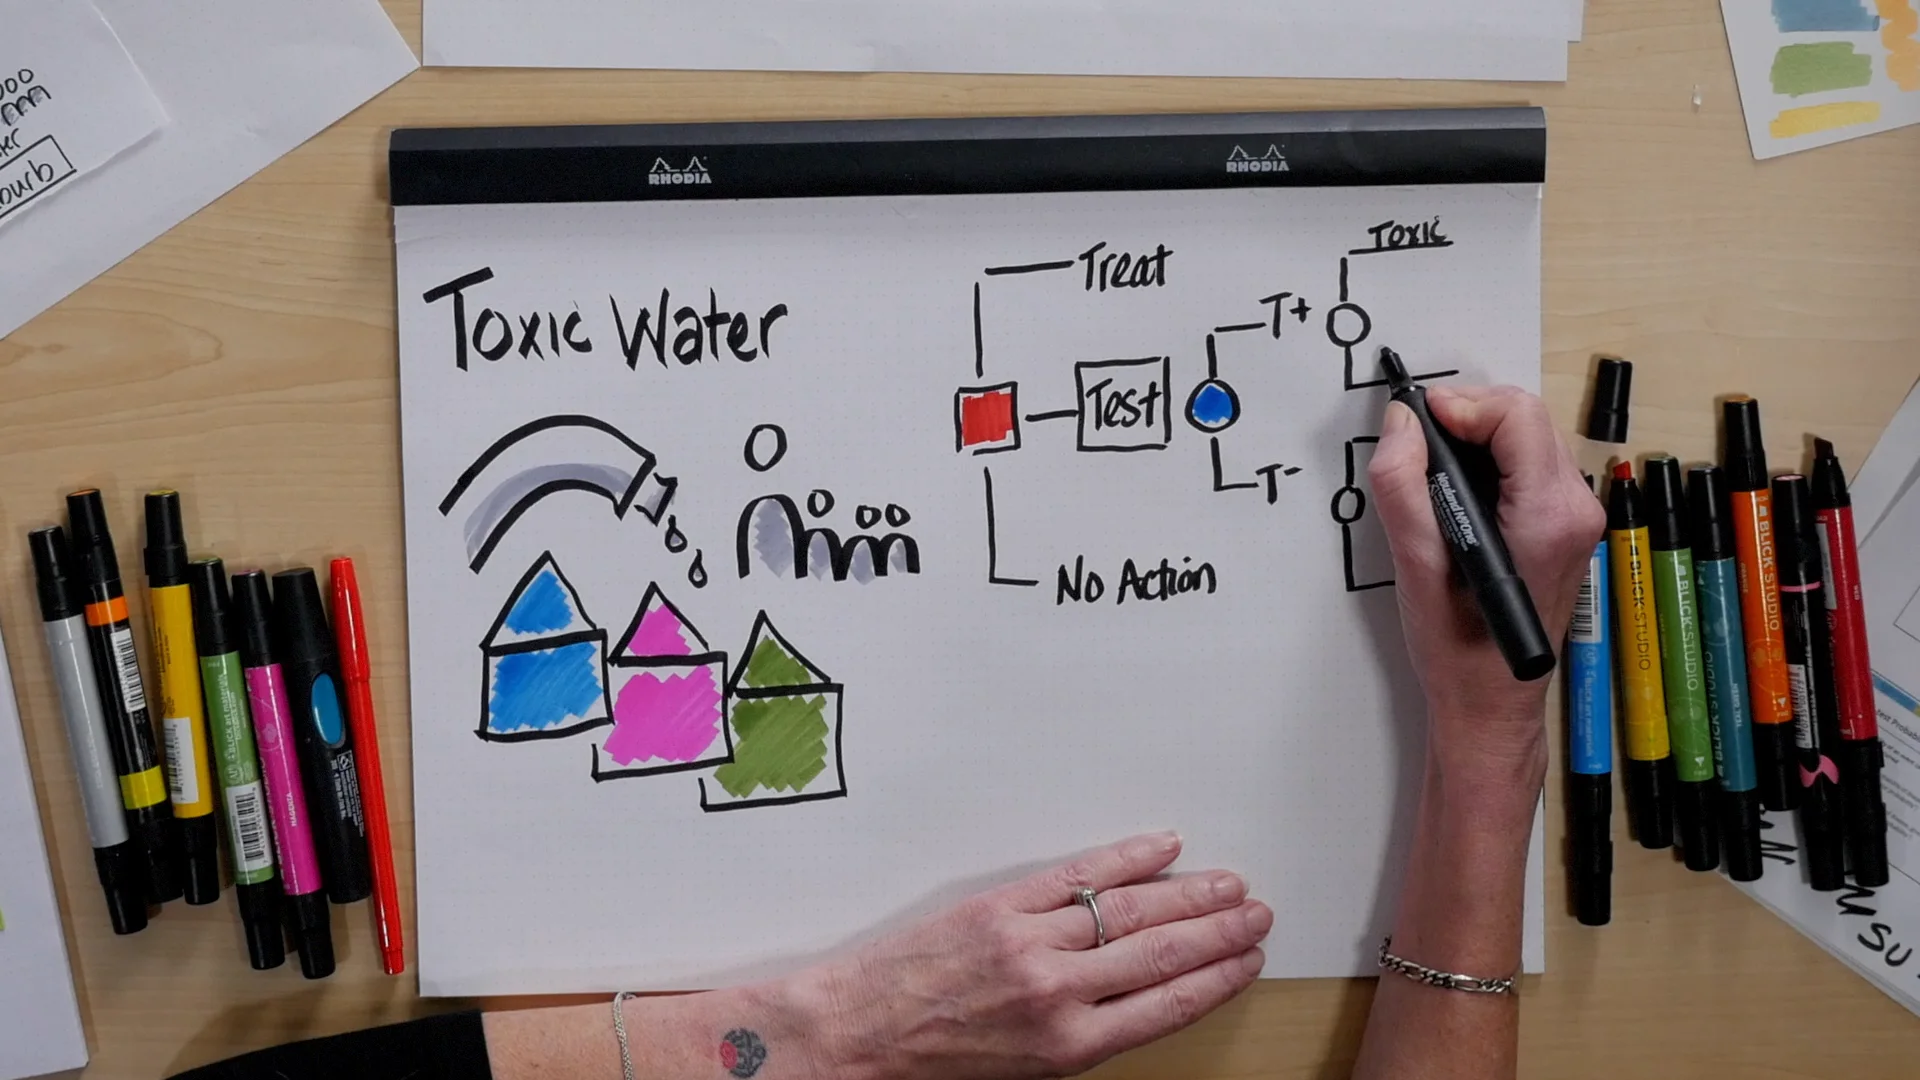 RHODIA
RHODIA
Toxic Water
Treat
Test
No Action
T+
T-
Toxic
Neuland No.One
BLICK STUDIO
BLICK STUDIO
BLICK STUDIO
BLICK STUDIO
MAGENTA